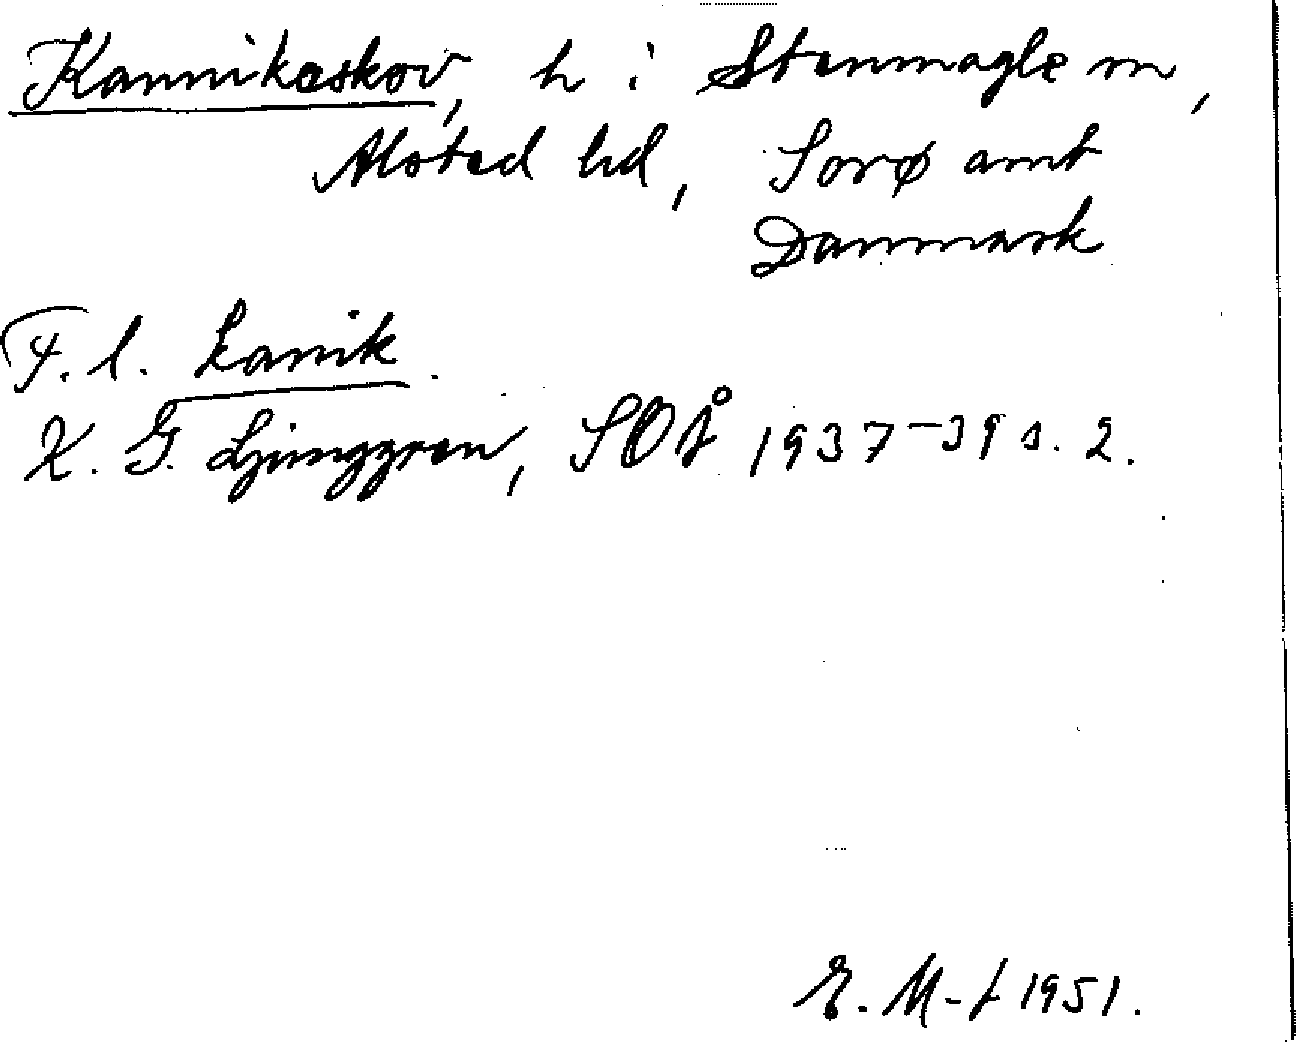 Kannikeskov, h i Stenmagle m,
Alsted hd, Sorø amt
Danmark
F. l. kanik.
K. G. Ljunggren, SOÅ 1937-39 s. 2.
E. M-t 1951.